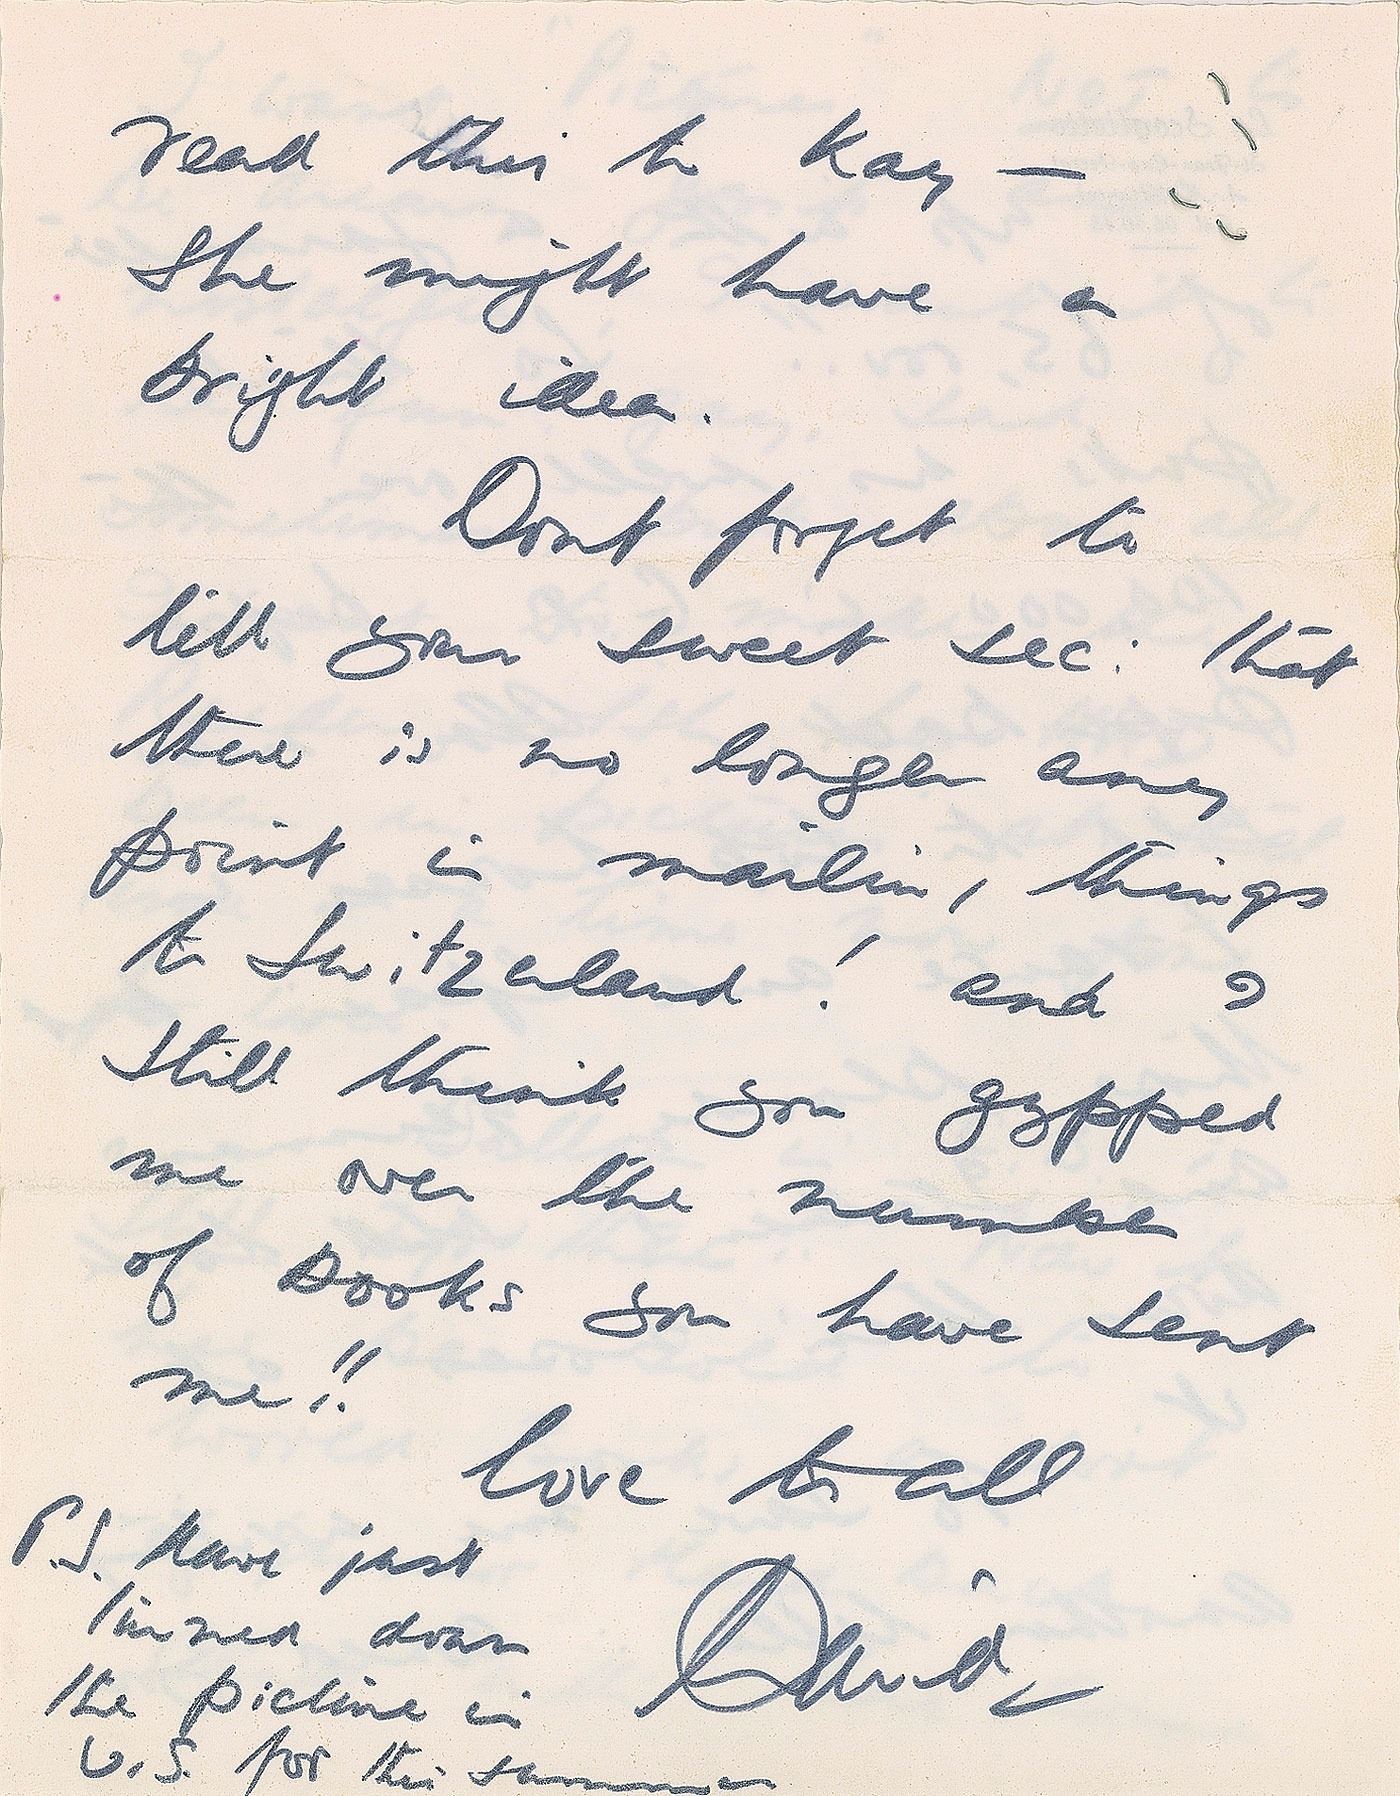 read this to Kay —
She might have a
bright idea.
Dont forget to
tell your sweet sec: that
there is no longer any
point in mailing things
to Switzerland! and I
still think you gypped
me over the number
of books you have sent
me!!
love to all
David
P.S. have just
turned down
the picture in
U.S. for this summer